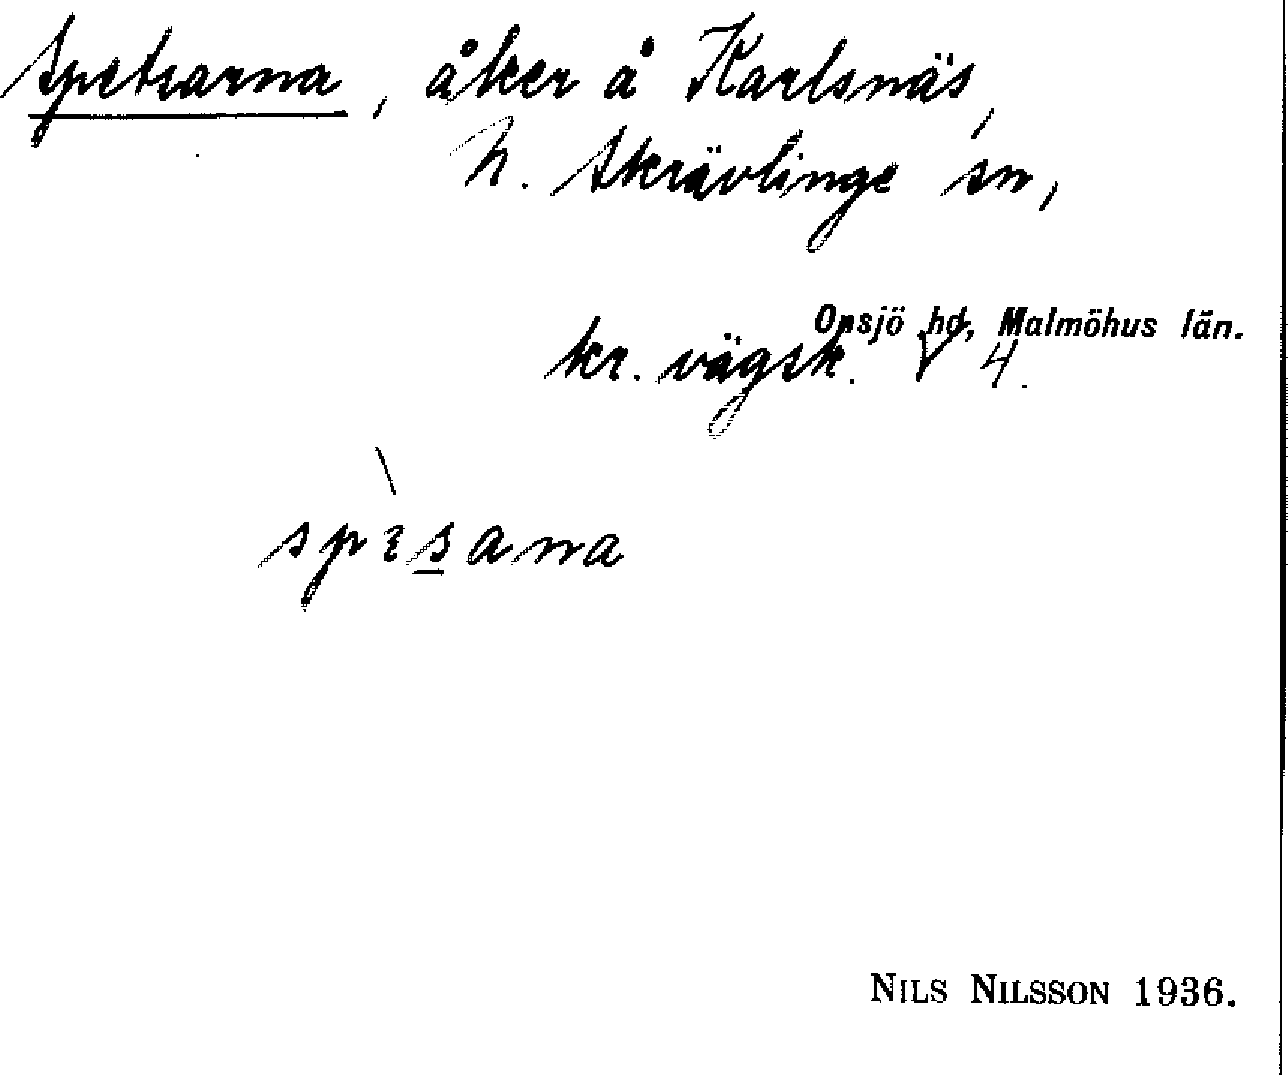 Spetsarna, åker å Karlsnäs,
N. Skrävlinge sn,
Onsjö hd, Malmöhus län.
kr. vägsk. V 4.
spɛsana
NILS NILSSON 1936.